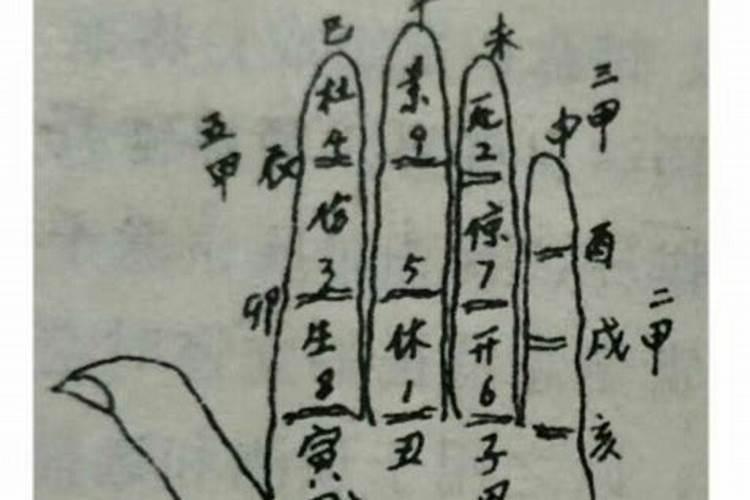 巳 未
杜 景 死 三甲
4 9 2 申
五甲 辰
伤 惊 酉
3 5 7
卯 二甲
生 休 开 戌
8 1 6
寅 丑 子 亥